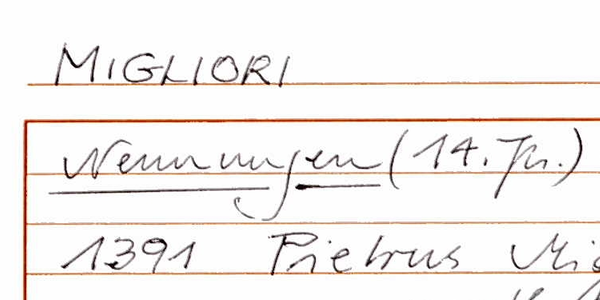 MIGLIORI
Nennungen (14. Jh.)
1391 Pietrus Mig